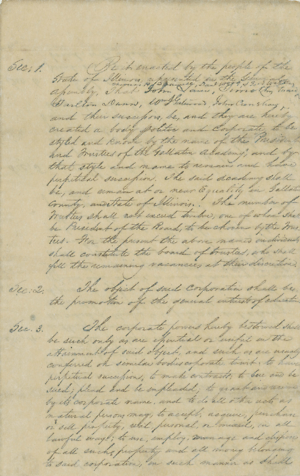 Sec. 1. Be it enacted by the people of the
State of Illinois represented in the General
Assembly, That John
and their successors, be, and they are hereby
created a body politic and corporate, to be
styled and known by the name of the President
and Trustees of the Gallatin Academy, and by
that style and name to remain and have
perpetual succession. The said academy shall
be, and remain at or near Equality in Gallatin
county, and State of Illinois. The number of
Trustees shall not exceed twelve, one of whom shall
be President of the Board, to be chosen by the Trus-
tees. For the present the above named individuals
shall constitute the board of trustees, who shall
fill the remaining vacancies, at their discretion.
Sec. 2. The object of said Corporation shall be,
the promotion of the general interests of education
Sec. 3. The corporate powers hereby bestowed shall
be such only as are essential or useful in the
attainment of said object, and such as are usually
conferred on similar bodies corporate, to have
perpetual succession, to make contracts, to sue and be
sued, plead and be impleaded, to grant and receive
by its corporate name, and to do all other acts as
natural persons may; to accept, acquire, purchase
or sell property, real, personal or mixed, in all
lawful ways; to use, employ, manage and dispose
of all such property and all money belonging
to said corporation, in such manner as shall